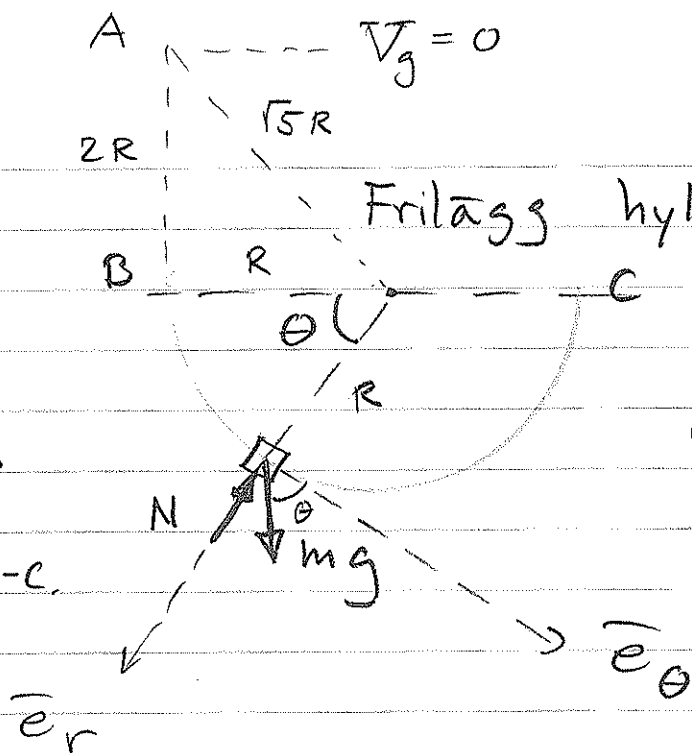 A V̅g = 0
√5R
2R
Frilägg hyl
B R C
θ
R
N θ
mg
-c.
e̅r e̅θ